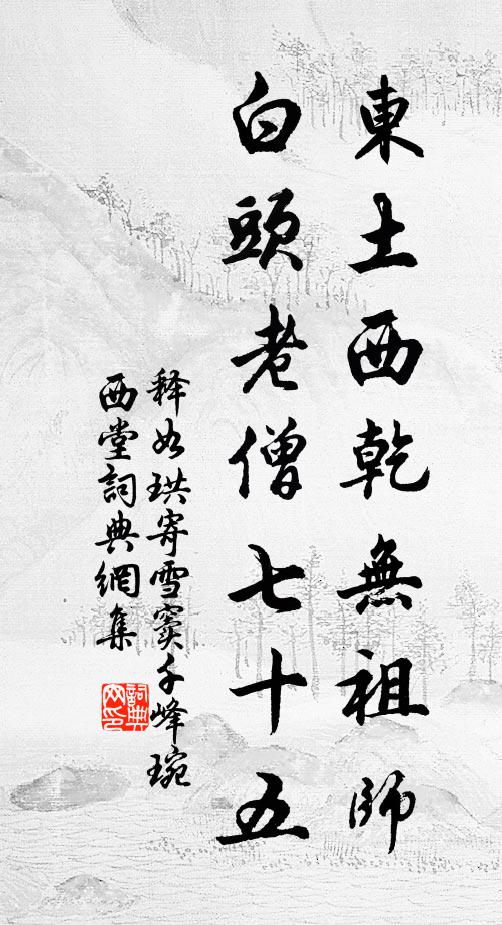 東土西乾無祖師
白頭老僧七十五
釋如珙寄雪竇千峰琬
西堂詞典網集
詞典网印